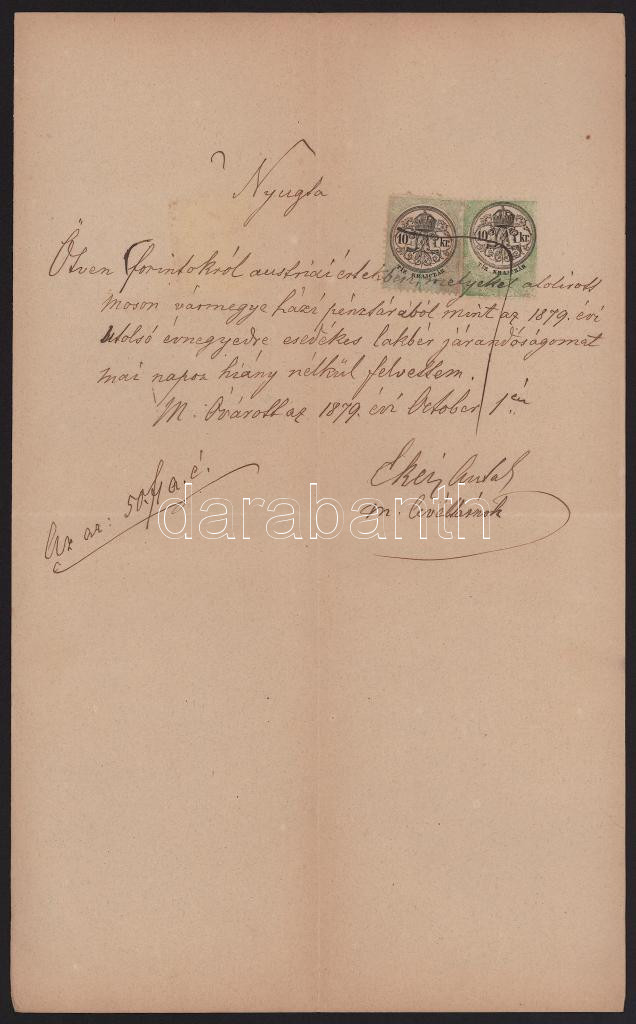 Nyugta
10 kr. 10 kr.
TIZ KRAJCZÁR TIZ KRAJCZÁR
Ötven forintokról austriai értekben, melyeket alolirott
Moson vármegye házi pénztárából mint az 1879. évi
utolsó évnegyedre esedékes lakbér járandóságomat
mai napon hiány nélkül felvettem.
M. Óvárott az 1879. évi October 1én
Antal
m.
Az az: 50 f a. é.
darabanth